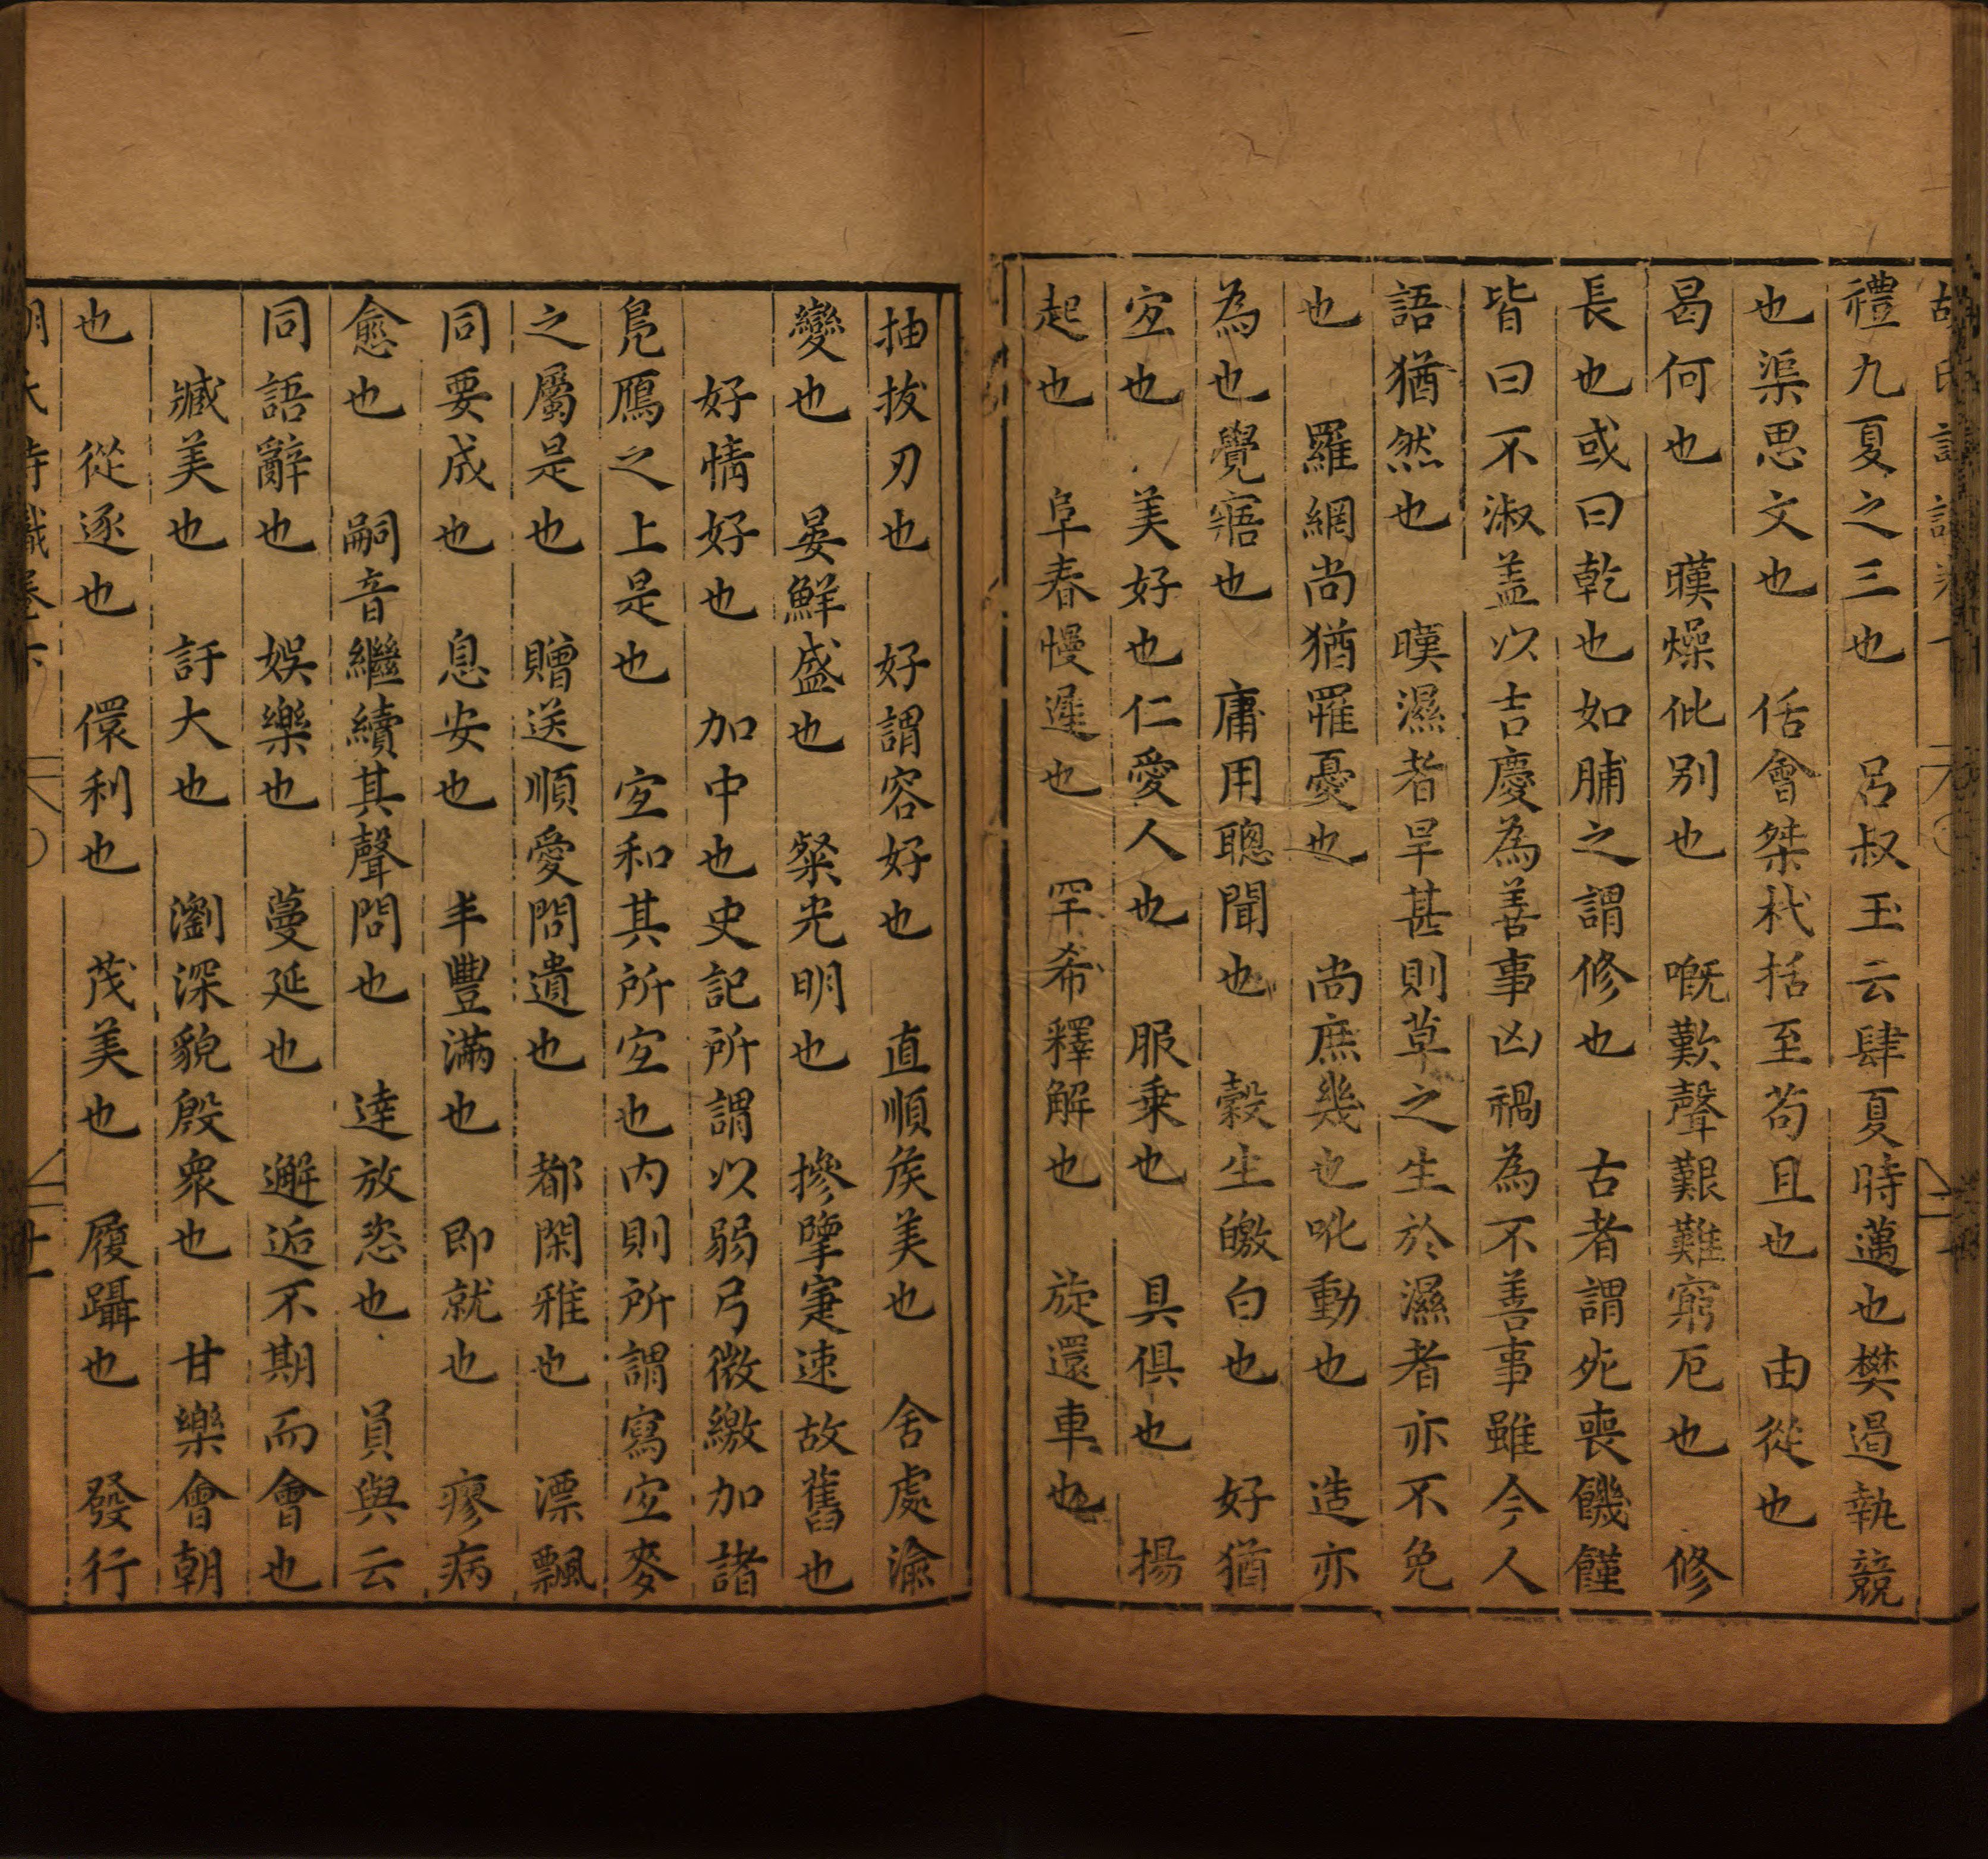 禮九夏之三也　呂叔玉云肆夏時邁也樊遏執競
也渠思文也　佸會桀杙括至苟且也　由從也
曷何也　暵燥仳别也　嘅歎聲艱難窮厄也　修
長也或曰乾也如脯之謂修也　古者謂死喪饑饉
皆曰不淑盖以吉慶為善事凶禍為不善事雖今人
語猶然也　暵濕者旱甚則草之生於濕者亦不免
也　羅網尚猶罹憂也　尚庶幾也吪動也　造亦
為也覺寤也　庸用聰聞也　縠生皦白也　好猶
宐也　美好也仁愛人也　服乗也　具俱也　揚
起也　阜春慢遲也　罕希釋解也　旋還車也
抽拔刃也　好謂容好也　直順矦美也　舍處渝
變也　晏鮮盛也　粲光明也　摻擥寁速故舊也
好情好也　加中也史記所謂以弱弓微繳加諸
鳬鴈之上是也　宐和其所宐也内則所謂寫宐麥
之屬是也　贈送順愛問遺也　都閑雅也　漂飄
同要成也　息安也　丰豐滿也　即就也　瘳病
愈也　嗣音繼續其聲問也　達放恣也　員與云
同語辭也　娱樂也　蔓延也　邂逅不期而會也
臧美也　訏大也　瀏深貌殷衆也　甘樂會朝
也　從逐也　儇利也　茂美也　履躡也　發行